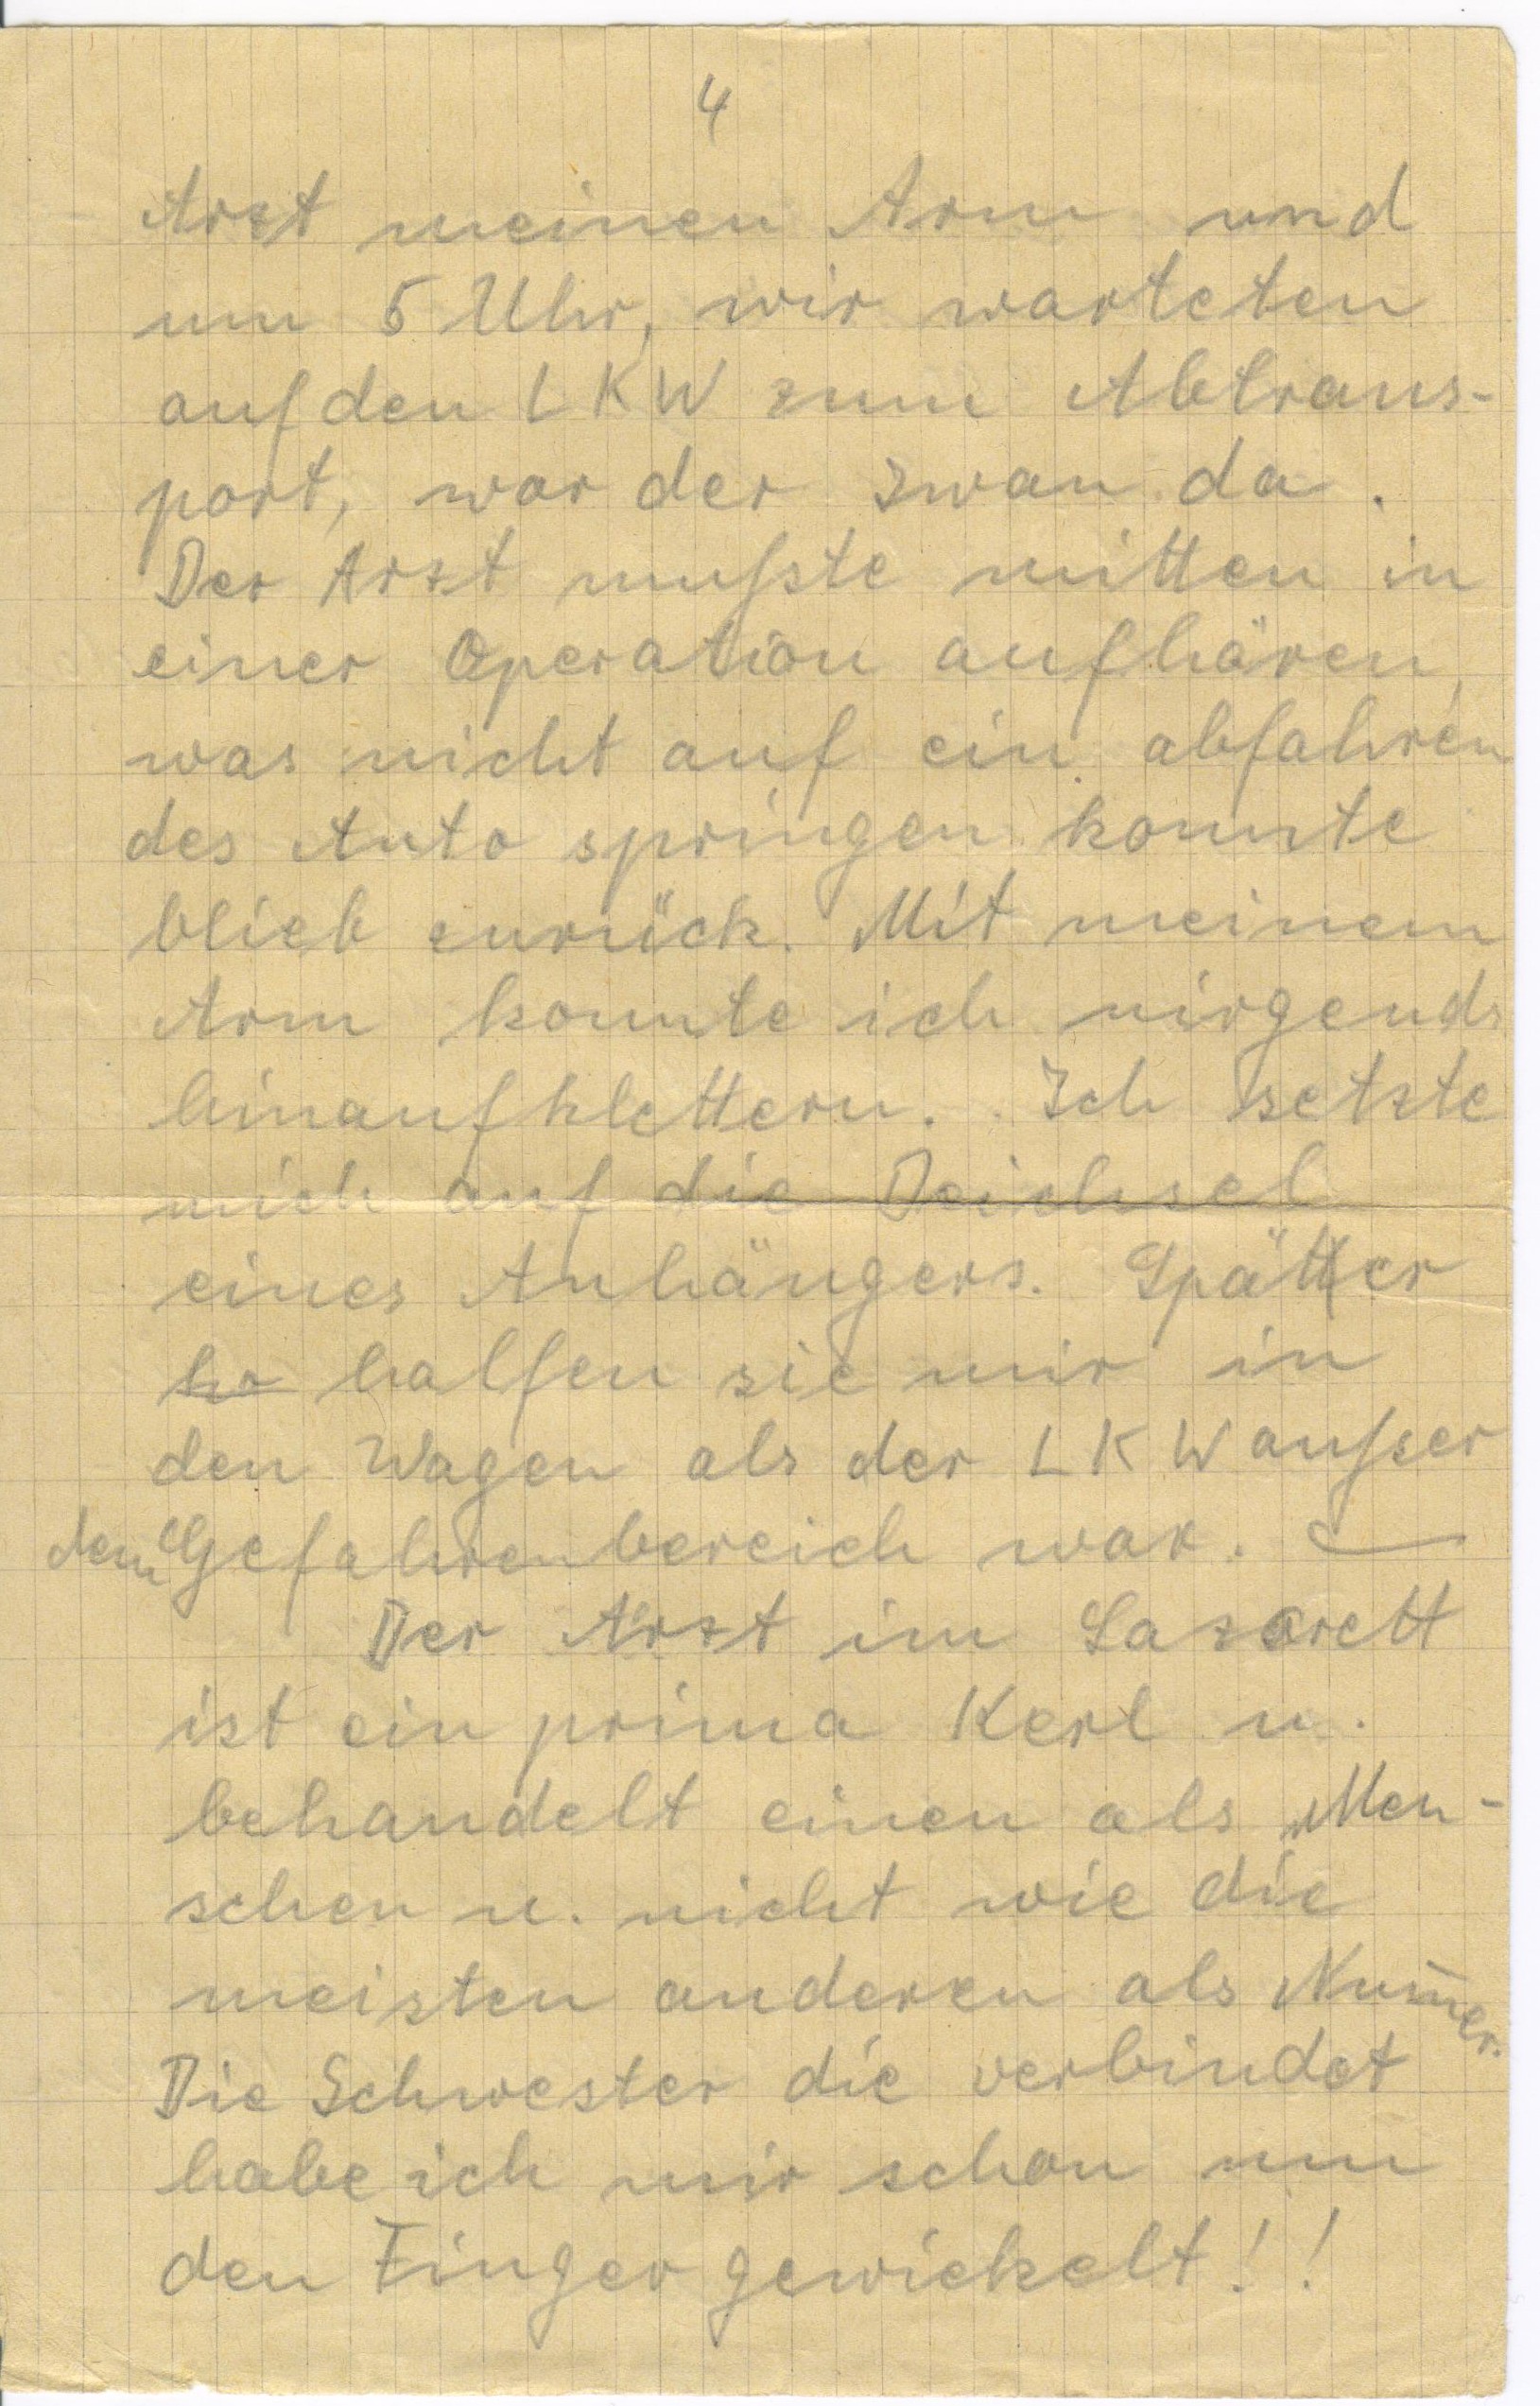 4
Arzt meinen Arm und
um 5 Uhr, wir warteten
auf den LKW zum Abtrans-
port, war der Iwan da.
Der Arzt mußste mitten in
einer Operation aufhören,
was nicht auf ein abfahren
des Auto springen konnte
blieb zurück. Mit meinem
Arm konnte ich nirgends
hinaufklettern. Ich setzte
mich auf die Deichsel
eines Anhängers. Spätter
ha halfen sie mir in
den Wagen als der LKW aufser
dem Gefahrenbereich war.
Der Arzt im Lazarett
ist ein prima Kerl u.
behandelt einen als Men-
schen u. nicht wie die
meisten anderen als Num̄er.
Die Schwester die verbindet
habe ich mir schon um
den Finger gewickelt!!